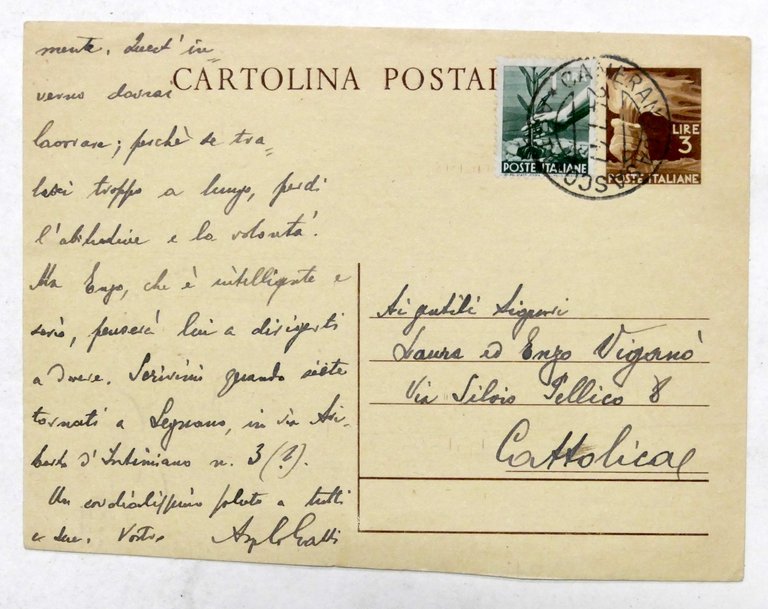 mente. Quest'in=
verno dovrai
lavorare; perchè se tra=
lasci troppo a lungo, perdi
l'abitudine e la volontà.
Ma Enzo, che è intelligente e
serio, penserà lui a dirigerti
a dovere. Scrivimi quando siete
tornati a Legnano, in via Ari=
berto d'Intimiano n. 3 (?).
Un cordialissimo saluto a tutti
e due. Vostro
CARTOLINA POSTAL
POSTE ITALIANE
LIRE
3
POSTE ITALIANE
Ai gentili Signori
Laura ed Enzo Viganò
Via Silvio Pellico 8
Cattolica